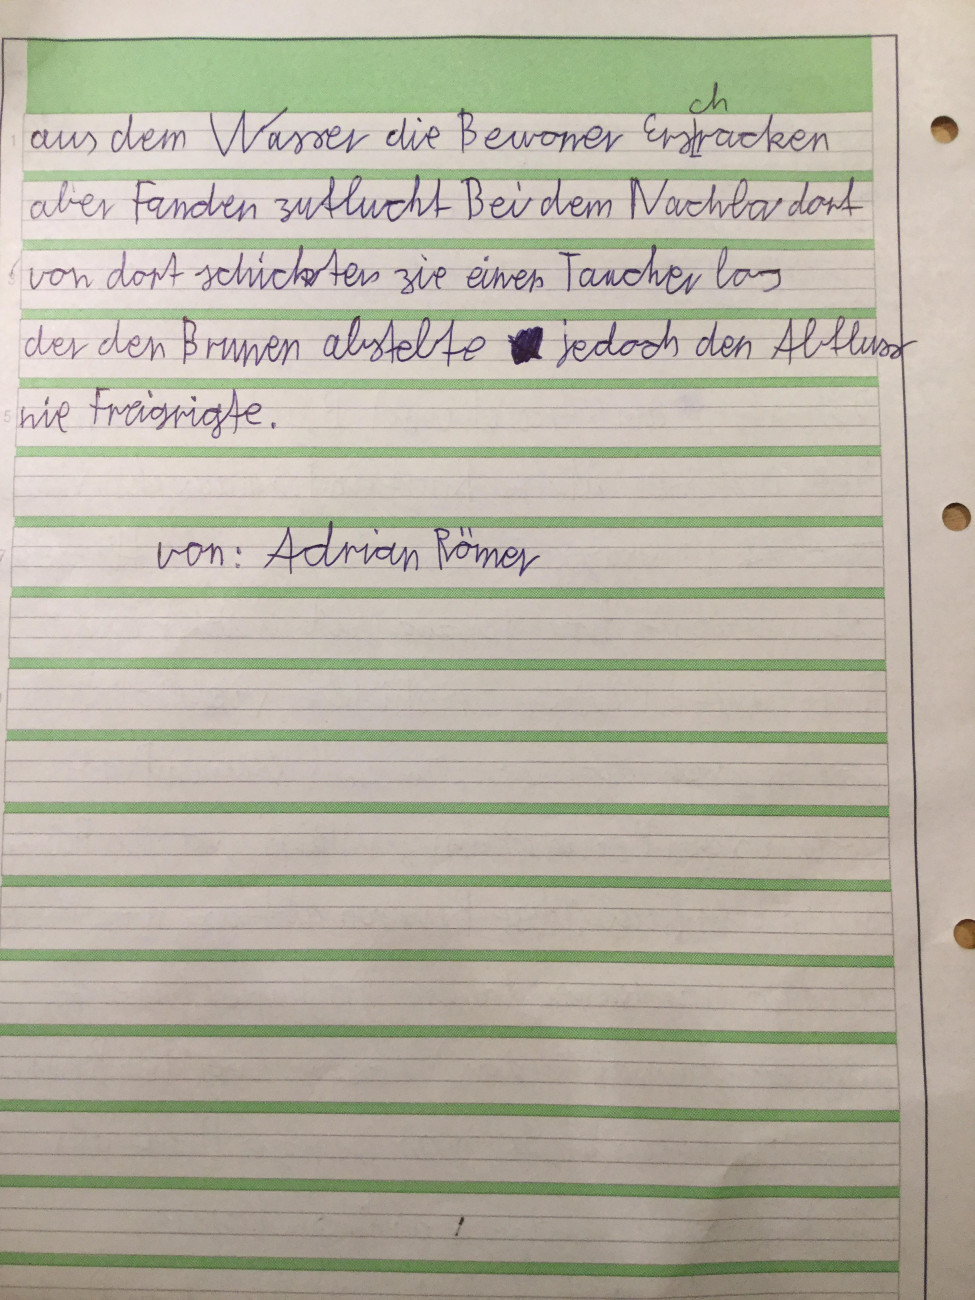 aus dem Wasser die Bewoner Erschracken
aber Fanden zuflucht Bei dem Nachba dorf
von dort schickten zie einen Taucher los
der den Brunen abstelte jedoch den Abfluss
nie Freigrigte.
von: Adrian Römer